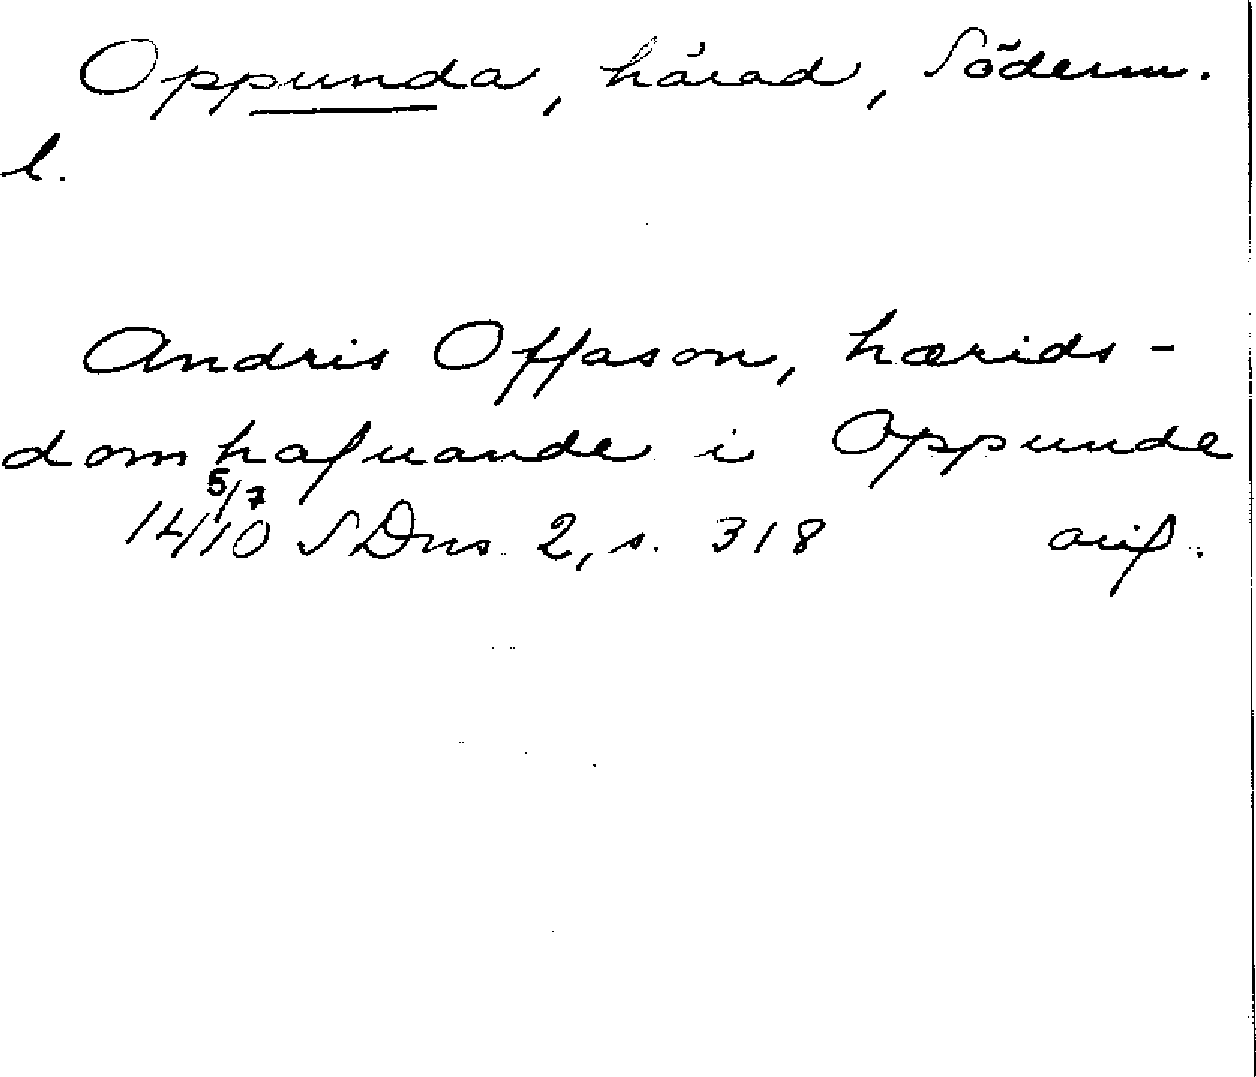 Oppunda, härad, Söderm.
l.
Andris Offason, hærids-
domhafuande i Oppunde
14 5/7 10 SDns 2, s. 318 avf.